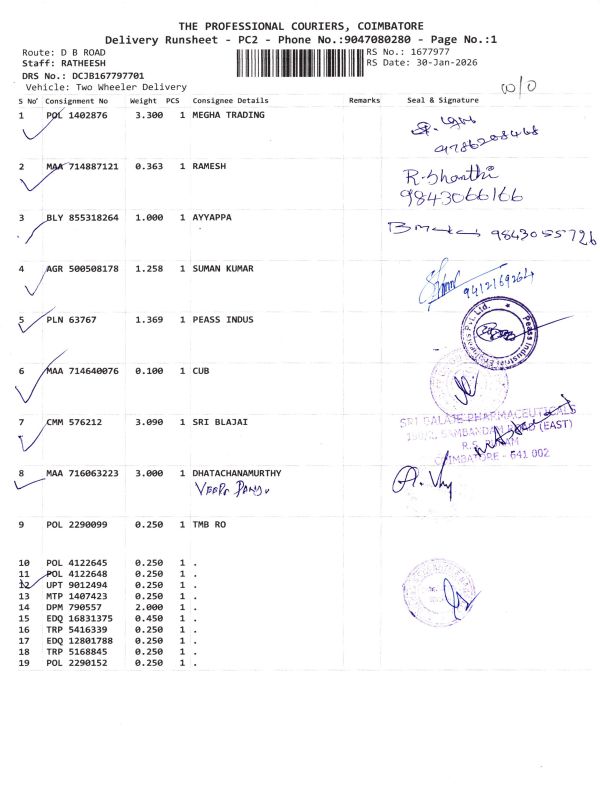 THE PROFESSIONAL COURIERS, COIMBATORE
Delivery Runsheet - PC2 - Phone No.:9047080280 - Page No.:1
Route: D B ROAD
RS No.: 1677977
Staff: RATHEESH
RS Date: 30-Jan-2026
DRS No.: DCJB167797701
Vehicle: Two Wheeler Delivery
S No Consignment No Weight PCS Consignee Details Remarks Seal & Signature
1 POL 1402876 3.300 1 MEGHA TRADING
2 MAA 714887121 0.363 1 RAMESH R. Shanthi
9843066166
3 BLY 855318264 1.000 1 AYYAPPA 9843055726
4 AGR 500508178 1.258 1 SUMAN KUMAR 9412169264
5 PLN 63767 1.369 1 PEASS INDUS
Peass Industrial Engineers Pvt. Ltd.
6 MAA 714640076 0.100 1 CUB
7 CMM 576212 3.090 1 SRI BLAJAI
SRI BALAJI PHARMACEUTICALS
SAMBANDAM ROAD (EAST)
R.S. PURAM
COIMBATORE - 641 002
8 MAA 716063223 3.000 1 DHATACHANAMURTHY
9 POL 2290099 0.250 1 TMB RO
10 POL 4122645 0.250 1 .
11 POL 4122648 0.250 1 .
12 UPT 9012494 0.250 1 .
13 MTP 1407423 0.250 1 .
14 DPM 790557 2.000 1 .
15 EDQ 16831375 0.450 1 .
16 TRP 5416339 0.250 1 .
17 EDQ 12801788 0.250 1 .
18 TRP 5168845 0.250 1 .
19 POL 2290152 0.250 1 .